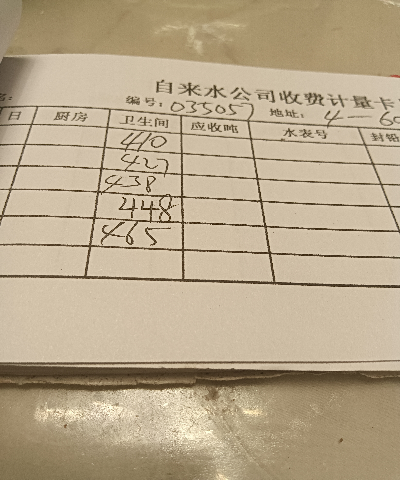 自来水公司收费计量卡
编号：035057 地址：4-60
日 厨房 卫生间 应收吨 水表号 封铅
410
427
438
448
465